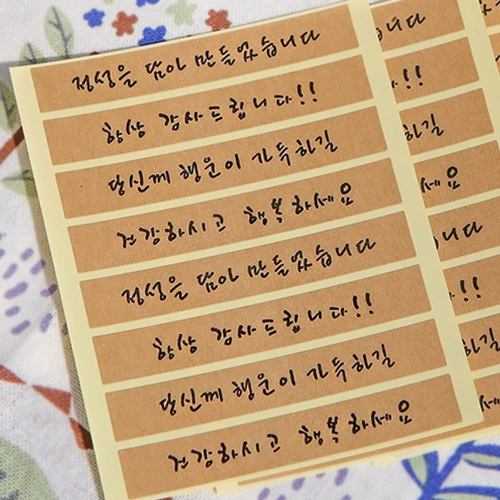 정성을 담아 만들었습니다
항상 감사드립니다!!
당신께 행운이 가득하길
건강하시고 행복하세요
정성을 담아 만들었습니다
항상 감사드립니다!!
당신께 행운이 가득하길
건강하시고 행복하세요
니다
!!
하길
세요
니다
!!
하길